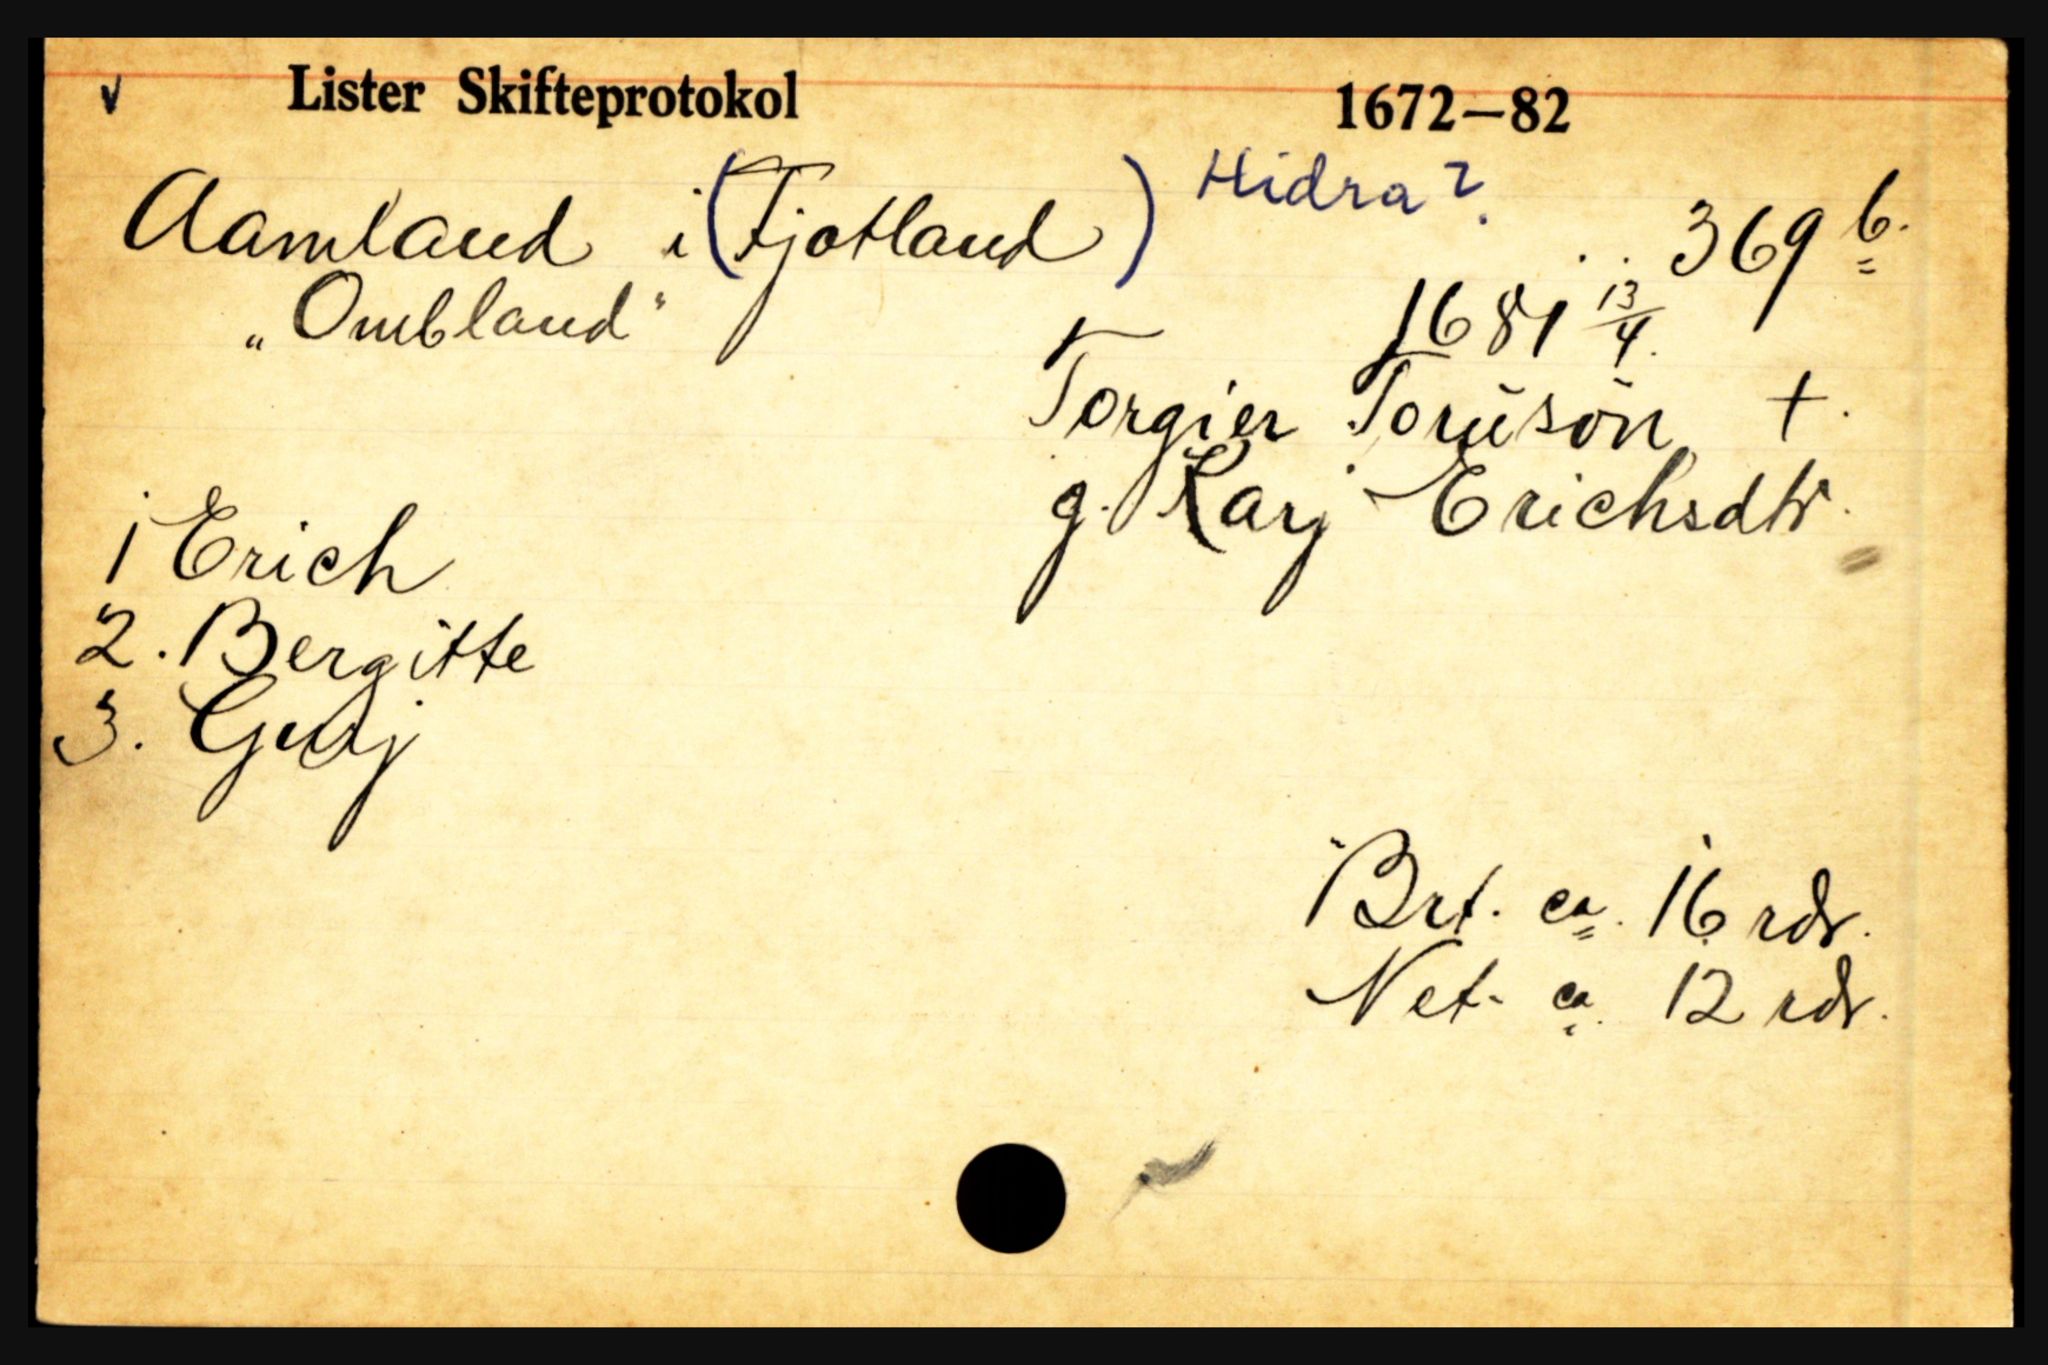 v Lister Skifteprotokol 1672–82
Aamland i (Fjotland) Hidra?
.. 369 b.
"Ombland"
1681 13/4.
Torgier Toruson +.
g. Karj Erichsdtr.
1 Erich
2. Bergitte
3. Gurj
Brt. ca. 16 rdr.
Net. ca. 12 rdr.